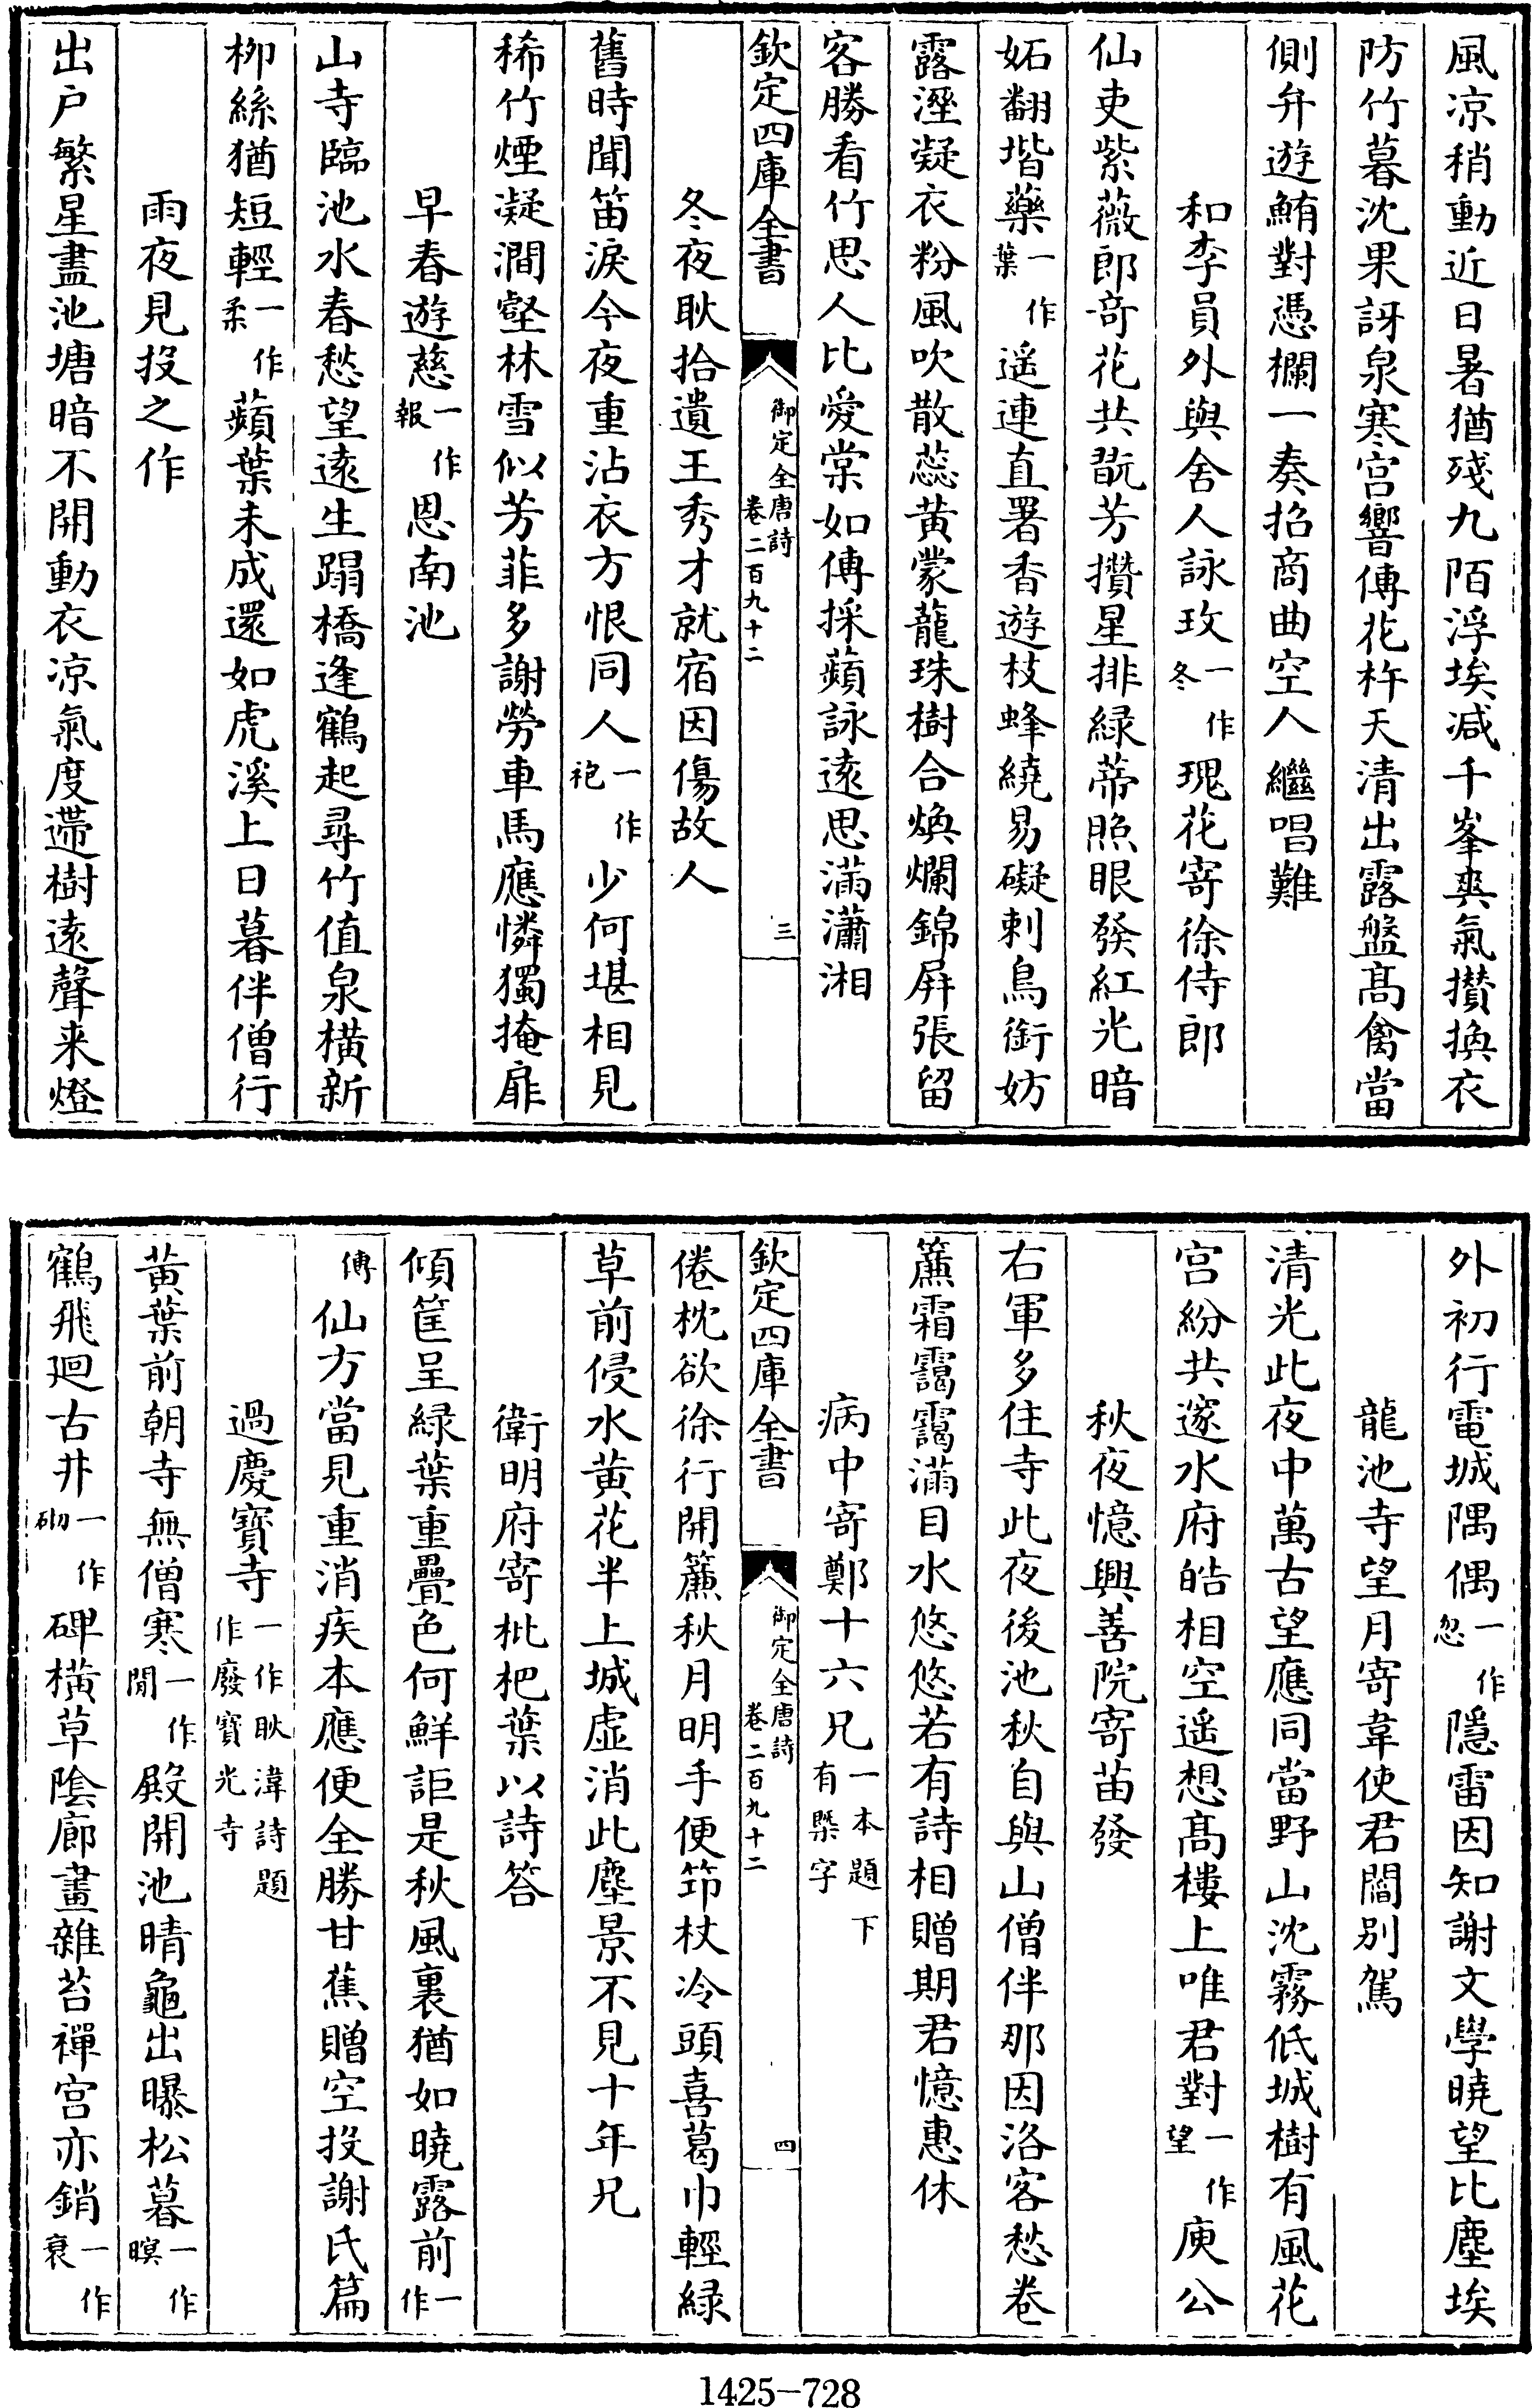 風凉稍動近日暑猶殘九陌浮埃減千峯爽氣攅換衣
防竹暮沈果訝泉寒宫響傳花杵天清出露盤髙禽當
側弁遊鮪對憑欄一奏招商曲空人繼唱難
和李員外與舍人詠玫一作冬瑰花寄徐侍郎
仙吏紫薇郎竒花共翫芳攢星排緑蒂照眼發紅光暗
妬翻堦藥一作葉遥連直署香遊枝蜂繞易礙刺鳥銜妨
露溼凝衣粉風吹散蕊黄蒙龍珠樹合煥爛錦屏張留
客勝看竹思人比愛棠如傳採蘋詠遠思滿瀟湘
欽定四庫全書 御定全唐詩 卷二百九十二 三
冬夜耿拾遺王秀才就宿因傷故人
舊時聞笛淚今夜重沾衣方恨同人一作袍少何堪相見
稀竹煙凝澗壑林雪似芳菲多謝勞車馬應憐獨掩扉
早春遊慈一作報恩南池
山寺臨池水春愁望遠生蹋橋逢鶴起尋竹值泉横新
栁絲猶短輕一作柔蘋葉未成還如虎溪上日暮伴僧行
雨夜見投之作
出户繁星盡池塘暗不開動衣凉氣度遰樹遠聲来燈
外初行電城隅偶一作忽隱雷因知謝文學曉望比塵埃
龍池寺望月寄韋使君閻别駕
清光此夜中萬古望應同當野山沈霧低城樹有風花
宫紛共邃水府皓相空遥想髙樓上唯君對一作望庾公
秋夜憶興善院寄苗發
右軍多住寺此夜後池秋自與山僧伴那因洛客愁卷
簾霜靄靄滿目水悠悠若有詩相贈期君憶惠休
病中寄鄭十六兄一本題下有槩字
欽定四庫全書 御定全唐詩 卷二百九十二 四
倦枕欲徐行開簾秋月明手便筇杖冷頭喜葛巾輕緑
草前侵水黄花半上城虚消此塵景不見十年兄
衛明府寄枇杷葉以詩答
傾筐呈緑葉重疊色何鮮詎是秋風裏猶如曉露前一作
傳仙方當見重消疾本應便全勝甘蕉贈空投謝氏篇
過慶寶寺一作耿湋詩題作廢寶光寺
黄葉前朝寺無僧寒一作閒殿開池晴龜出曝松暮一作暝
鶴飛廻古井一作砌碑横草陰廊畫雜苔禪宫亦銷一作衰
1425-728